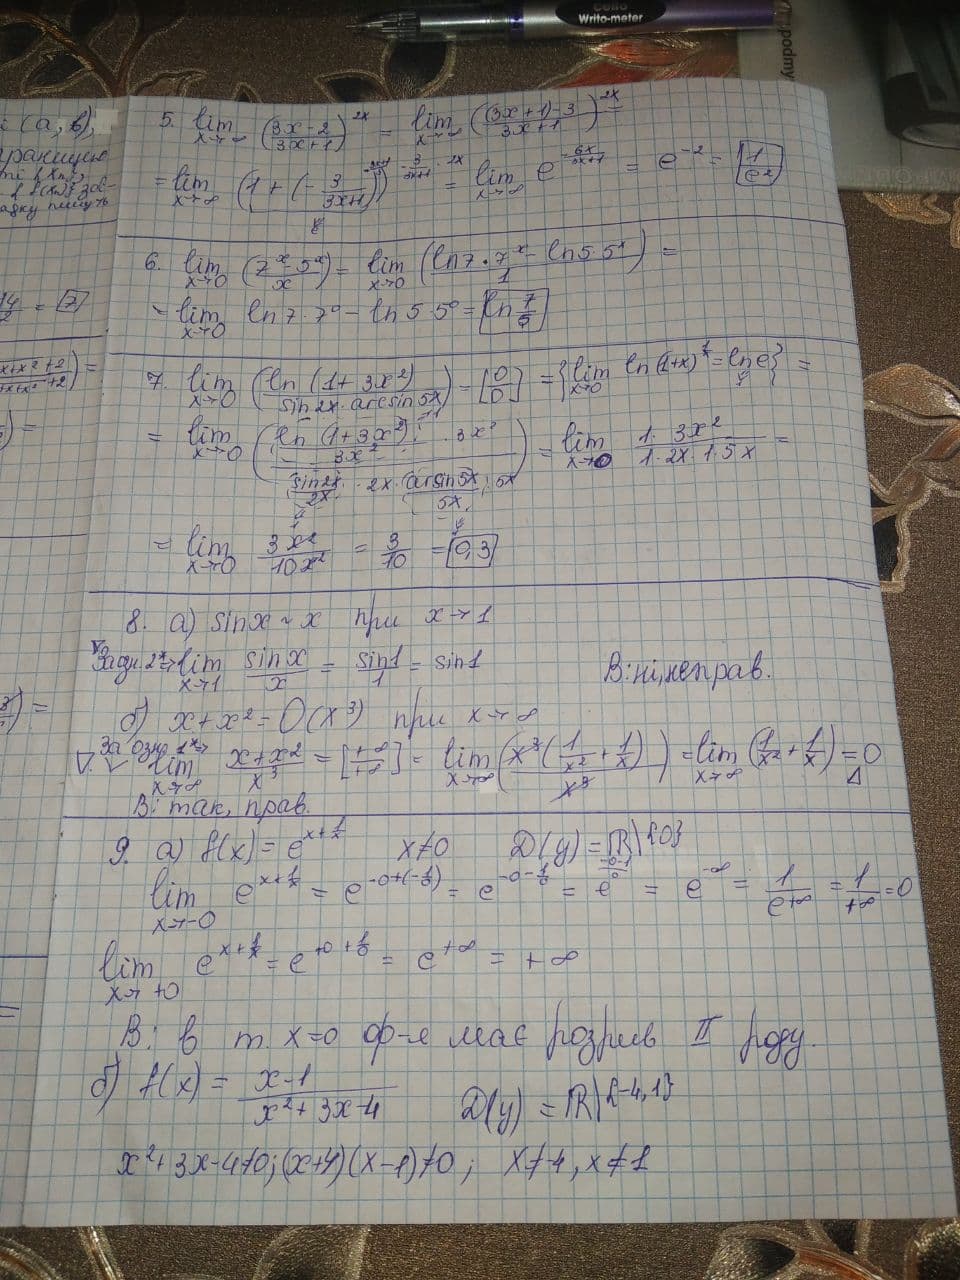 Cello
Writo-meter
podmy
і (a, b),
границю
5. lim x→∞ (3x-2 / 3x+1)^2x = lim x→∞ ((3x+1)-3 / 3x+1)^2x =
= lim x→∞ (1 + (-3/(3x+1))) ^ -3/(3x+1) · 2x = lim x→∞ e^-6x/(3x+1) = e^-2 = 1/e²
6. lim x→0 (7^x - 5^x / x) = lim x→0 (ln7·7^x - ln5·5^x / 1) =
= lim x→0 ln7·7^0 - ln5·5^0 = ln 7/5
7. lim x→0 (ln(1+3x²) / sin2x·arcsin5x) = [0/0] = {lim x→0 ln(1+x)^1/x = lne} =
= lim x→0 (ln(1+3x²)/3x² · 3x² / sin2x/2x · 2x · arcsin5x/5x · 5x) = lim x→0 1·3x² / 1·2x·1·5x =
= lim x→0 3x²/10x² = 3/10 = 0,3
8. а) sinx ~ x при x→1
lim x→1 sinx/x = sin1/1 = sin1 В: ні, неправ.
б) x+x² = O(x³) при x→∞
lim x→∞ x+x²/x³ = [+∞/+∞] = lim x→∞ (x³(1/x² + 1/x) / x³) = lim x→∞ (1/x² + 1/x) = 0
В: так, прав.
9. а) f(x) = e^x+1/x x≠0 D(y) = R\{0}
lim x→-0 e^x+1/x = e^-0+(-1/0) = e^-0-1/0 = e^-0-1/0 = e^-∞ = 1/e^+∞ = 1/+∞ = 0
lim x→+0 e^x+1/x = e^+0+1/0 = e^+∞ = +∞
В: в т. x=0 ф-я має розрив II роду.
б) f(x) = x-1 / x²+3x-4 D(y) = R\{-4,1}
x²+3x-4≠0; (x+4)(x-1)≠0; x≠-4, x≠1